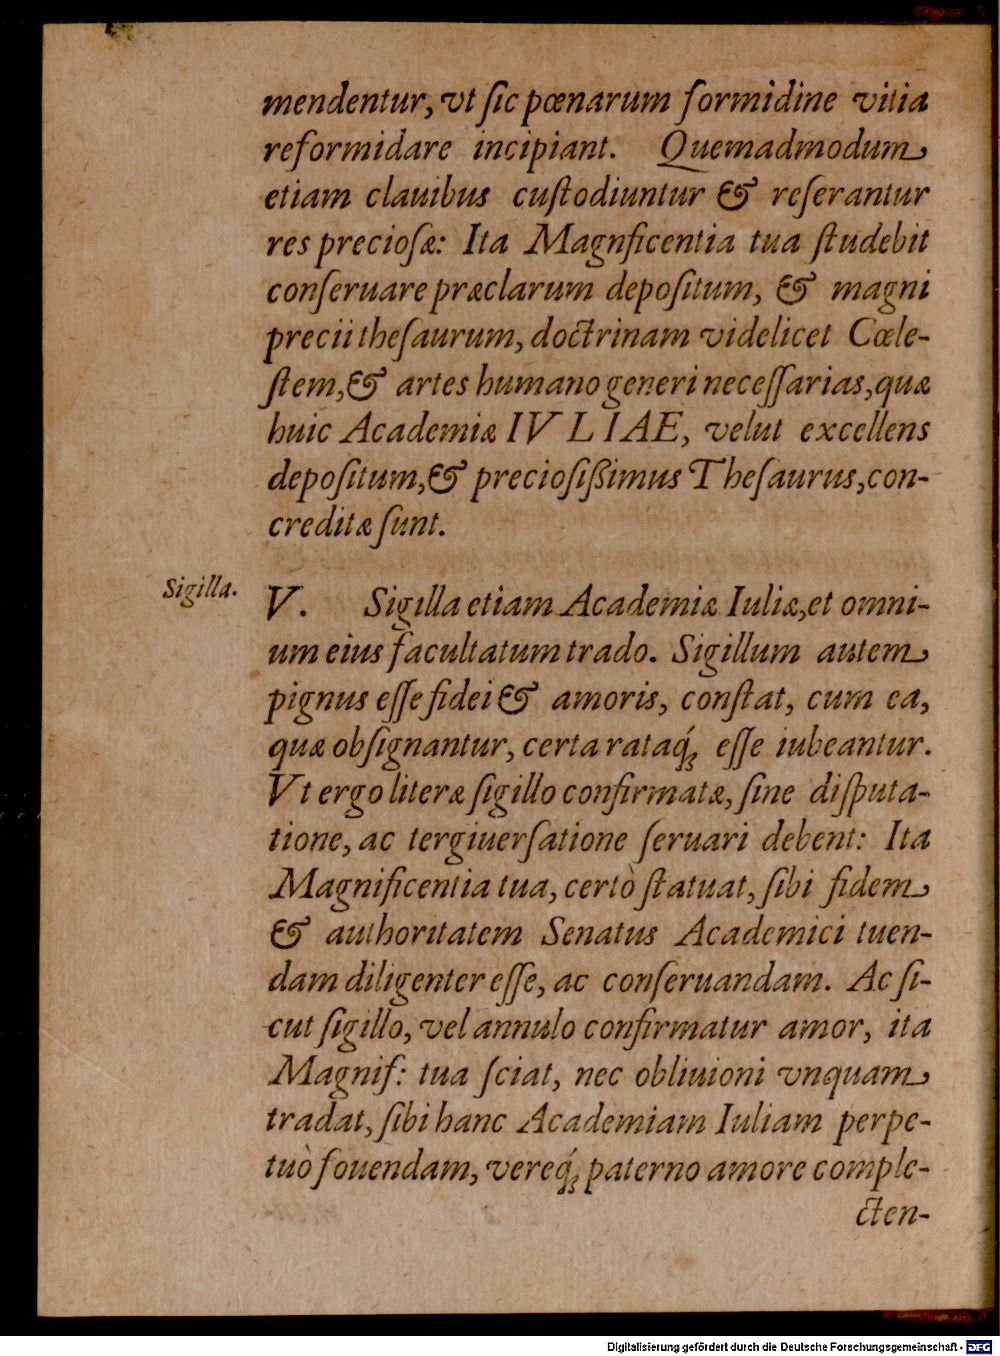 mendentur, vt ſic pœnarum formidine vitia
reformidare incipiant. Quemadmodum
etiam clauibus cuſtodiuntur & reſerantur
res precioſæ: Ita Magnficentia tua ſtudebit
conſeruare præclarum depoſitum, & magni
precii theſaurum, doctrinam videlicet Cœle-
ſtem, & artes humano generi neceſſarias, quæ
huic Academiæ IVLIAE, velut excellens
depoſitum, & precioſißimus Theſaurus, con-
creditæ ſunt.
Sigilla.
V. Sigilla etiam Academiæ Iuliæ, et omni-
um eius facultatum trado. Sigillum autem
pignus eſſe fidei & amoris, conſtat, cum ea,
quæ obſignantur, certa rataq́; eſſe iubeantur.
Vt ergo literæ ſigillo confirmatæ, ſine diſputa-
tione, ac tergiuerſatione ſeruari debent: Ita
Magnificentia tua, certò ſtatuat, ſibi fidem
& authoritatem Senatus Academici tuen-
dam diligenter eſſe, ac conſeruandam. Ac ſi-
cut ſigillo, vel annulo confirmatur amor, ita
Magnif: tua ſciat, nec obliuioni vnquam
tradat, ſibi hanc Academiam Iuliam perpe-
tuò fouendam, vereq́; paterno amore comple-
cten-
Digitalisierung gefördert durch die Deutsche Forschungsgemeinschaft - DFG